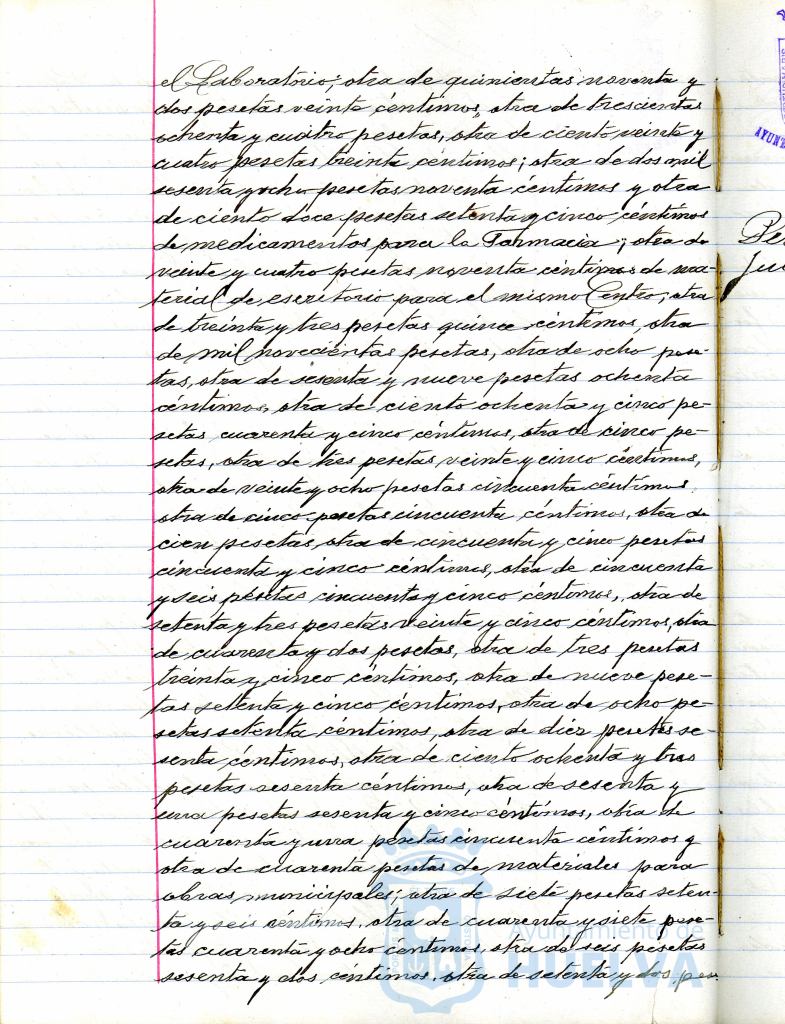 el Laboratorio; otra de quinientas noventa y
dos pesetas veinte céntimos, otra de trescientas
ochenta y cuatro pesetas, otra de ciento veinte y
cuatro pesetas treinta centimos; otra de dos mil
sesenta y ocho pesetas noventa céntimos y otra
de ciento doce pesetas setenta y cinco céntimos
de medicamentos para la Farmacia; otra de
veinte y cuatro pesetas noventa céntimos de ma-
terial de escritorio para el mismo Centro; otra
de treinta y tres pesetas quince céntimos, otra
de mil novecientas pesetas, otra de ocho pese-
tas, otra de sesenta y nueve pesetas ochenta
céntimos, otra de ciento ochenta y cinco pe-
setas cuarenta y cinco céntimos, otra de cinco pe-
setas, otra de tres pesetas veinte y cinco céntimos,
otra de veinte y ocho pesetas cincuenta céntimos,
otra de cinco pesetas cincuenta céntimos, otra de
cien pesetas, otra de cincuenta y cinco pesetas
cincuenta y cinco céntimos, otra de cincuenta
y seis pesetas cincuenta y cinco céntimos, otra de
setenta y tres pesetas veinte y cinco céntimos, otra
de cuarenta y dos pesetas, otra de tres pesetas
treinta y cinco céntimos, otra de nueve pese-
tas setenta y cinco céntimos, otra de ocho pe-
setas setenta céntimos, otra de diez pesetas se-
senta céntimos, otra de ciento ochenta y tres
pesetas sesenta céntimos, otra de sesenta y
una pesetas sesenta y cinco céntimos, otra de
cuarenta y una pesetas cincuenta céntimos y
otra de cuarenta pesetas de materiales para
obras municipales; otra de siete pesetas seten-
ta y seis céntimos, otra de cuarenta y siete pese-
tas cuarenta y ocho centimos, otra de seis pesetas
sesenta y dos céntimos, otra de setenta y dos pese
Ayuntamiento de
HUELVA